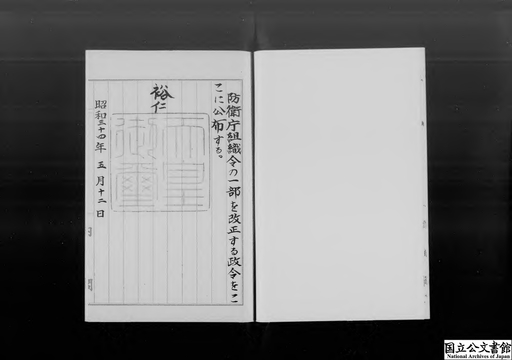 防衛庁組織令の一部を改正する政令をこ
こに公布する。
裕仁
天皇
御璽
昭和三十四年 五 月十二日
国立公文書館
National Archives of Japan